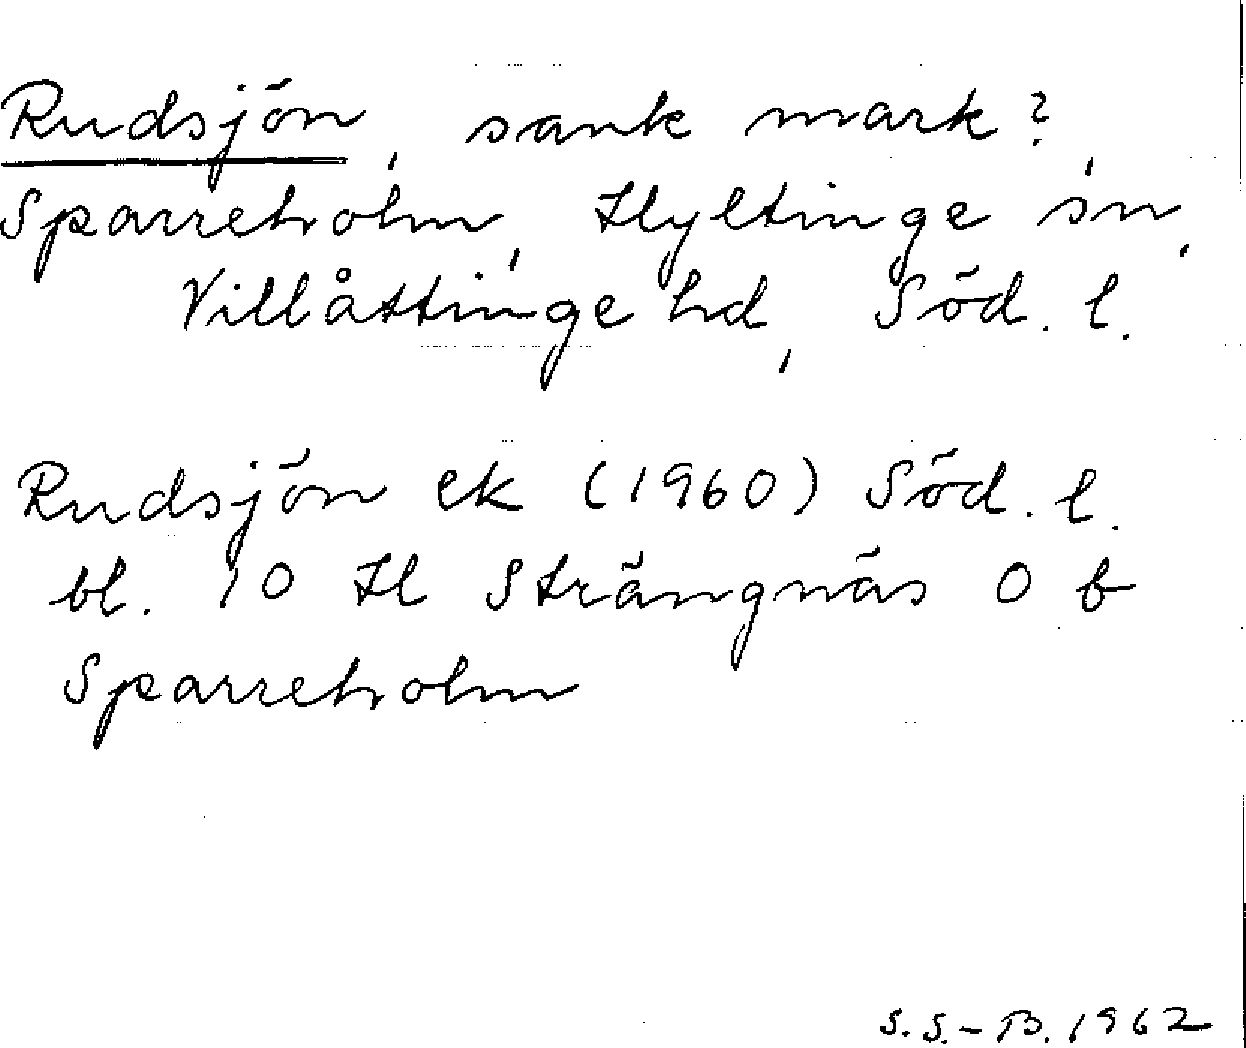 Rudsjön, sank mark?,
Sparreholm, Hyltinge sn,
Villåttinge hd, Söd. l.
Rudsjön ek (1960) Söd. l.
bl. 10 H Strängnäs 0 b
Sparreholm
S.S.-B. 1962